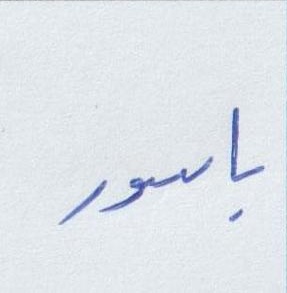 باسور